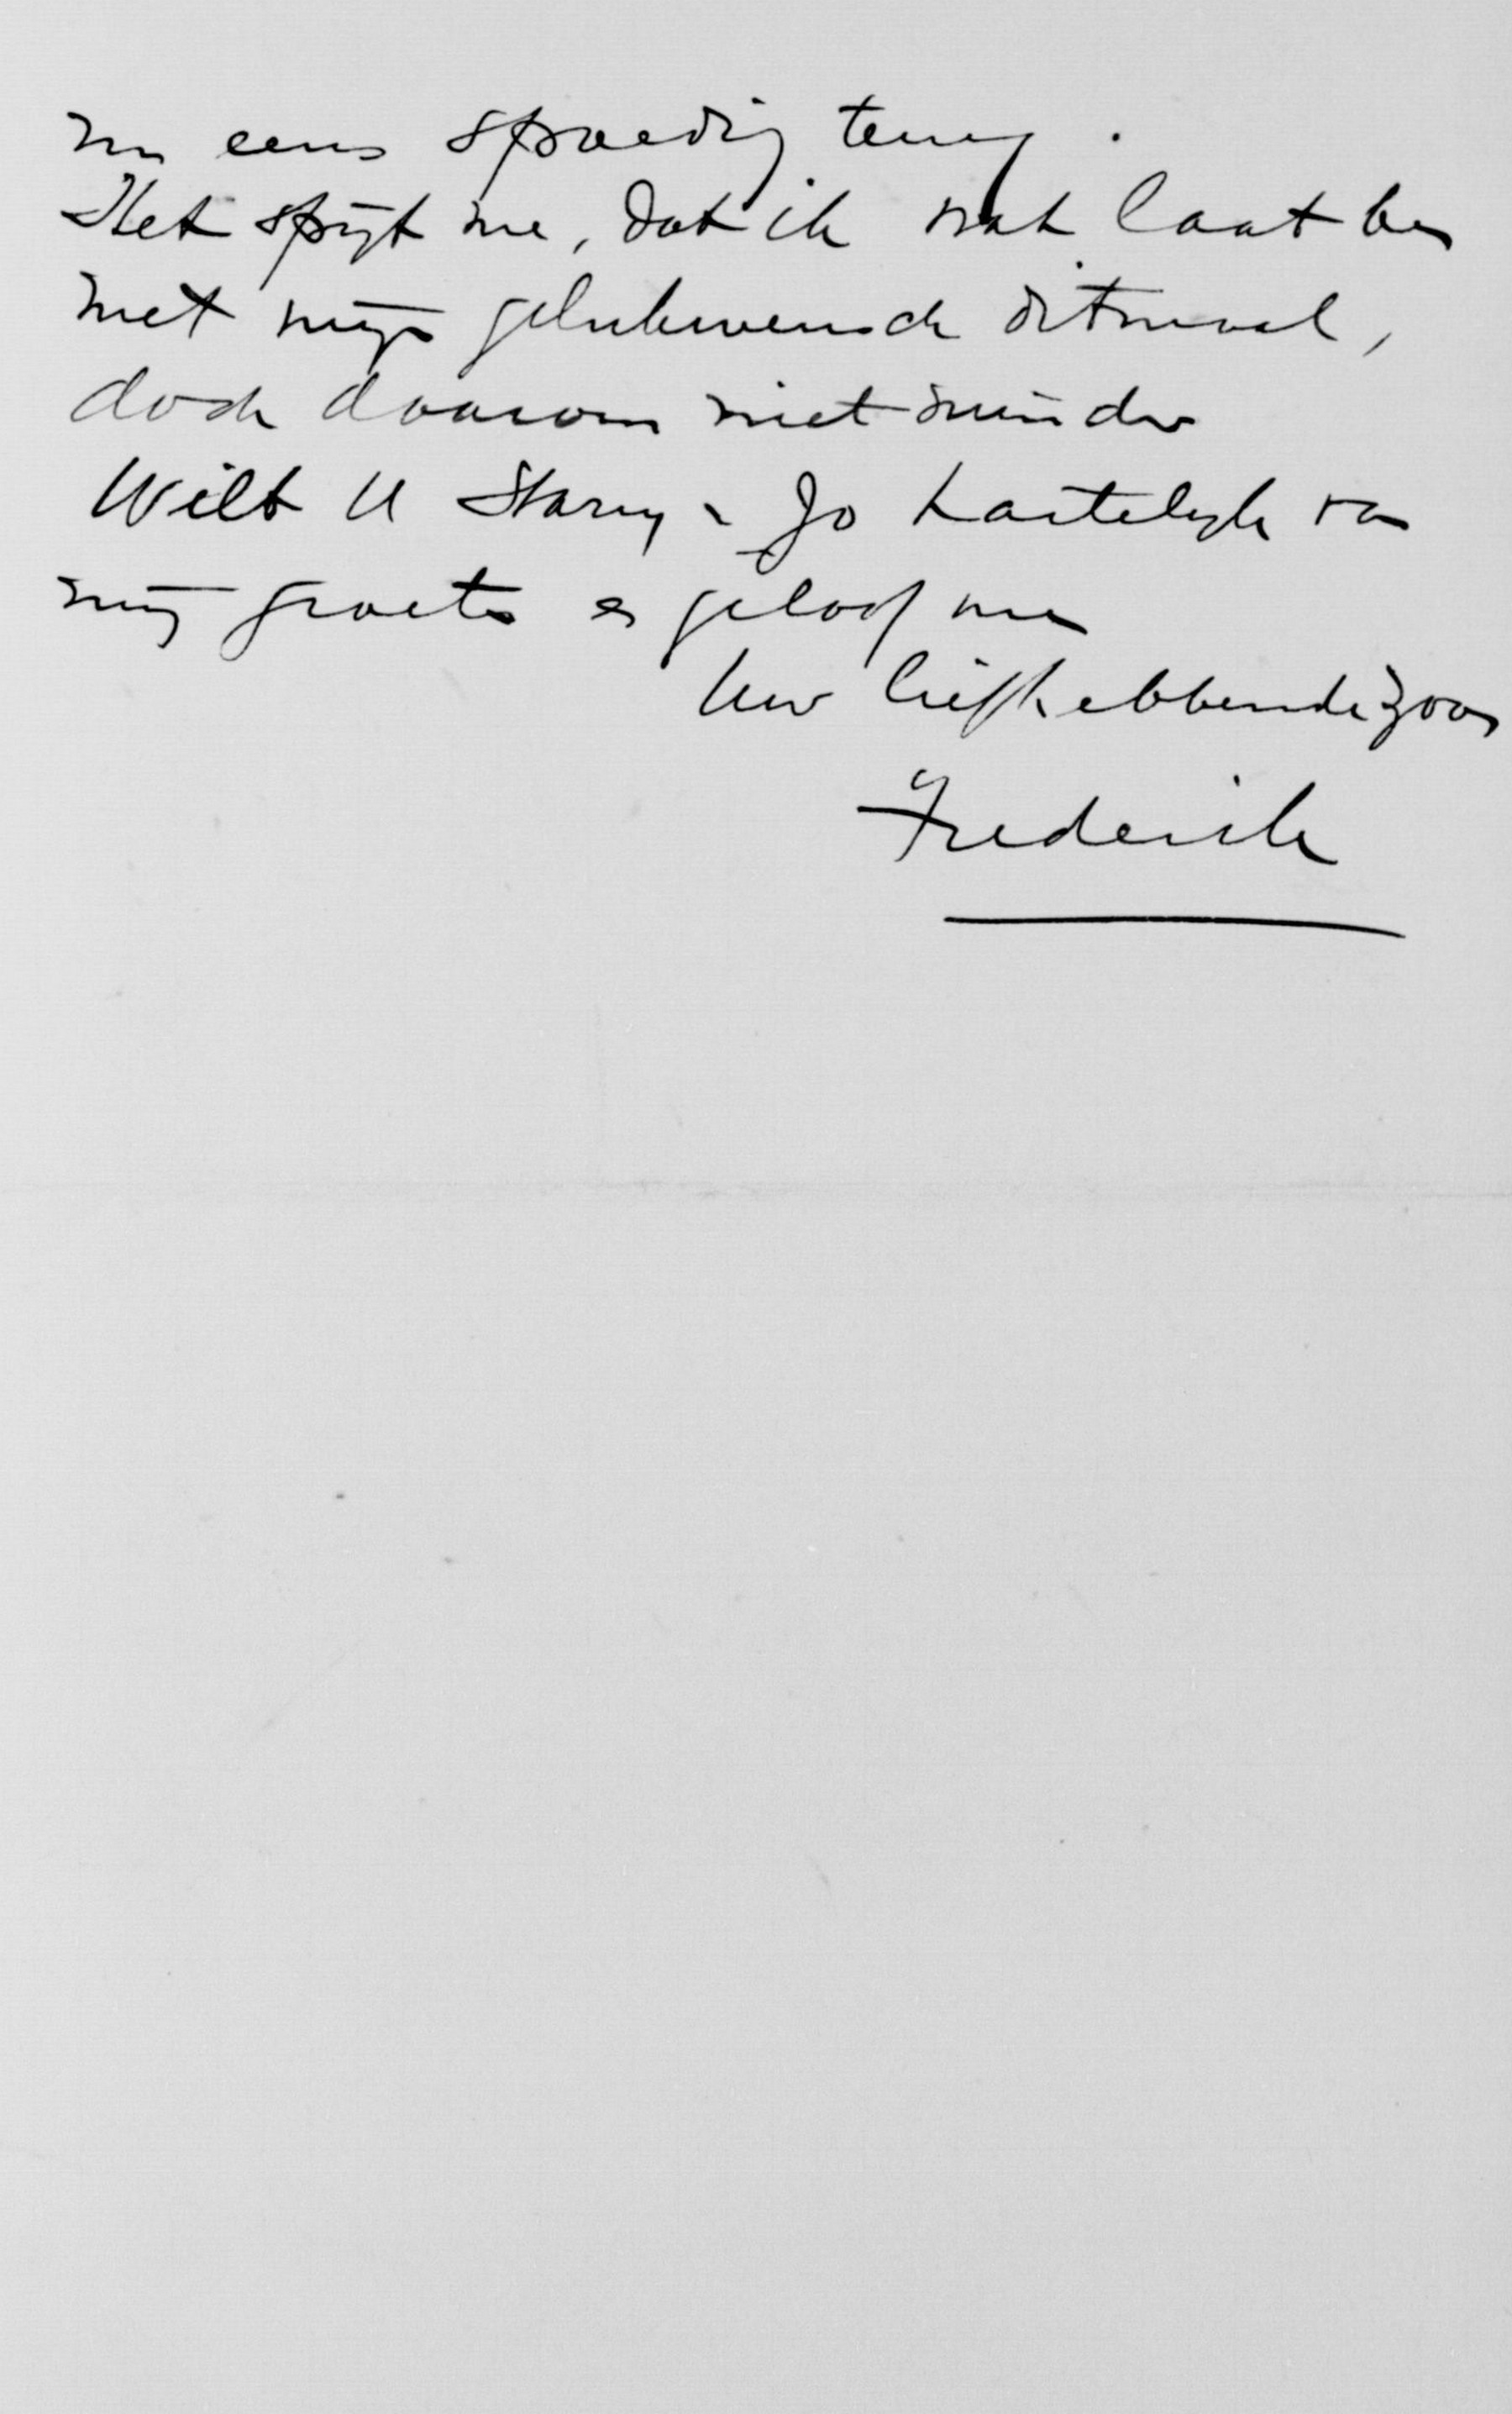 nu eens spoedig terug.
Het spijt me, dat ik wat laat ben
met mijn gelukwensch ditmaal,
doch daarom niet minder
Wilt U Jo hartelijk van
mij groeten en geloof me
Uw liefhebbende zoon
Frederik